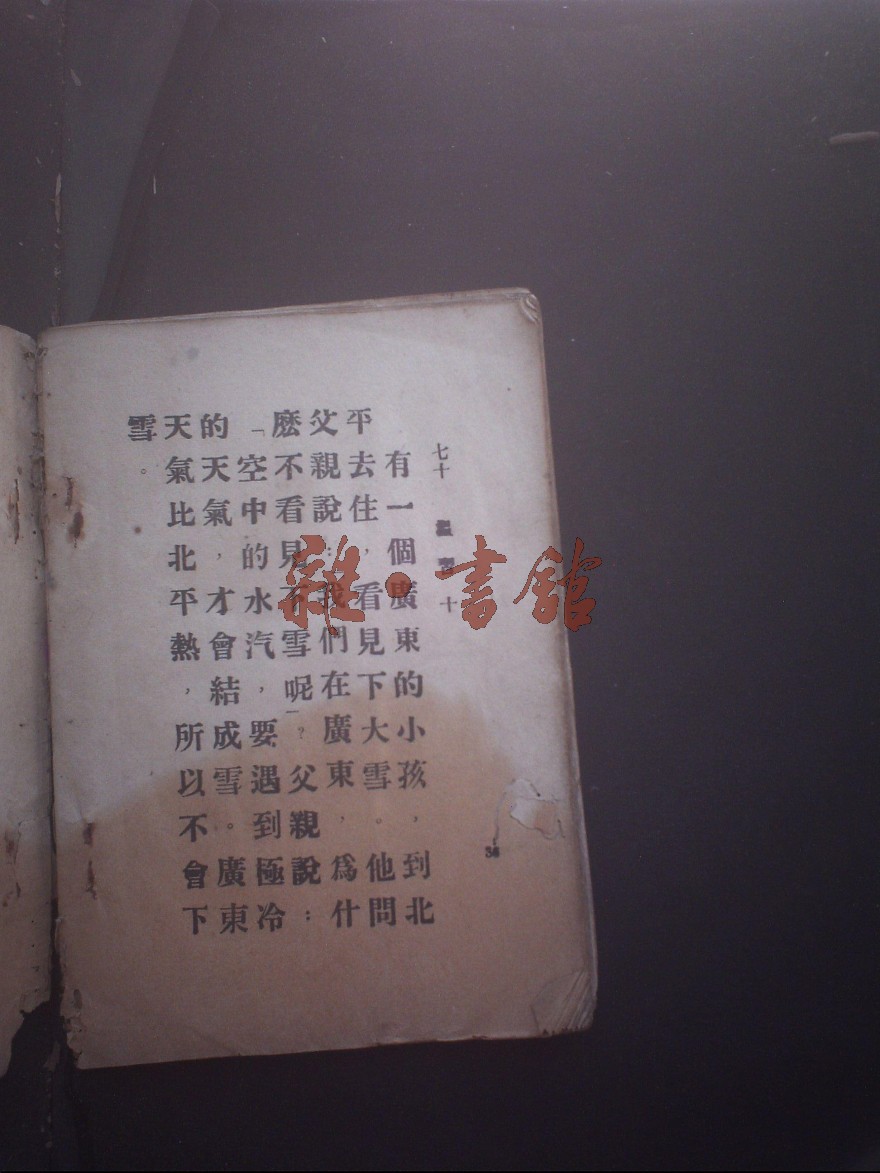 七十 溫習 十
有一個廣東的小孩，到北
平去住，看見下大雪。他問
父親說：我們在廣東，爲什
麽不看見下雪呢？」父親說：
「空中的水汽，要遇到極冷
的天氣，才會結成雪。廣東
天氣比北平熱，所以不會下
雪。
雜·書館